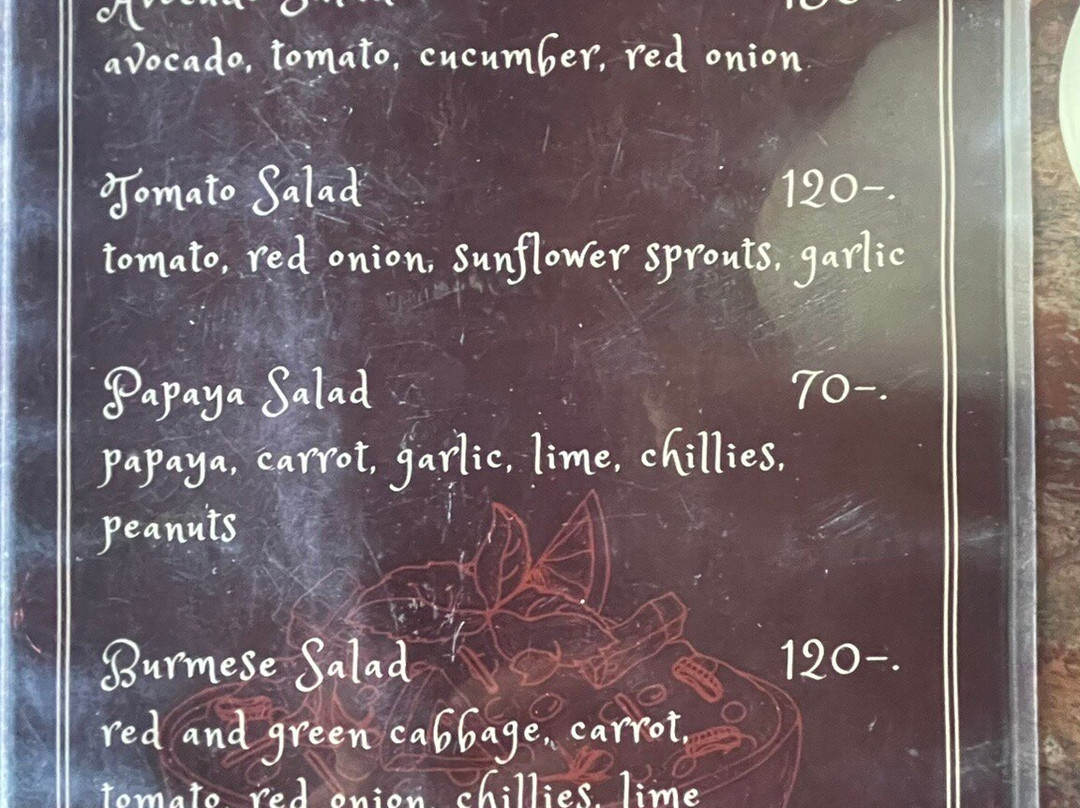 Avocado Salad
avocado, tomato, cucumber, red onion
Tomato Salad 120-.
tomato, red onion, sunflower sprouts, garlic
Papaya Salad 70-.
papaya, carrot, garlic, lime, chillies,
peanuts
Burmese Salad 120-.
red and green cabbage, carrot,
tomato, red onion, chillies, lime